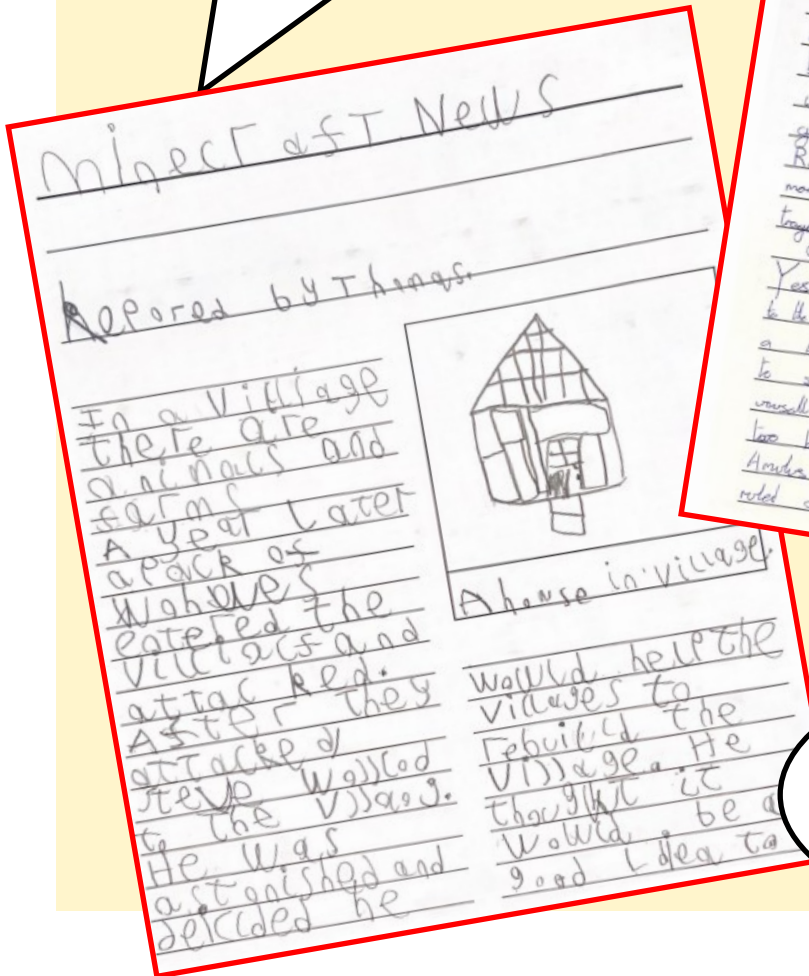 Minecraft News
Repored by Things.
In a villsage
there are
animals and
farms
A year Later
a pack of
entered the
and
attac ked.
After they
attacked
steve
to the
He was
astonished and
deicided he
A house in village.
would help the
villages to
rebuild the
villsage. He
thought it
would be a
good idea to
Yes
to the
a
to
two
ruled